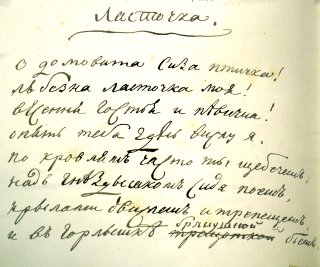 Ласточка.
О домовита сиза птичка!
любезна ласточка моя!
весення гостья и пѣвица!
опять тебя здѣсь вижу я.
по кровлямъ часто ты щебечешь:
надъ гнѣздышкомъ сидя поешь,
крылами движешь, и трепещешь
и въ горлышкѣ бьешь.